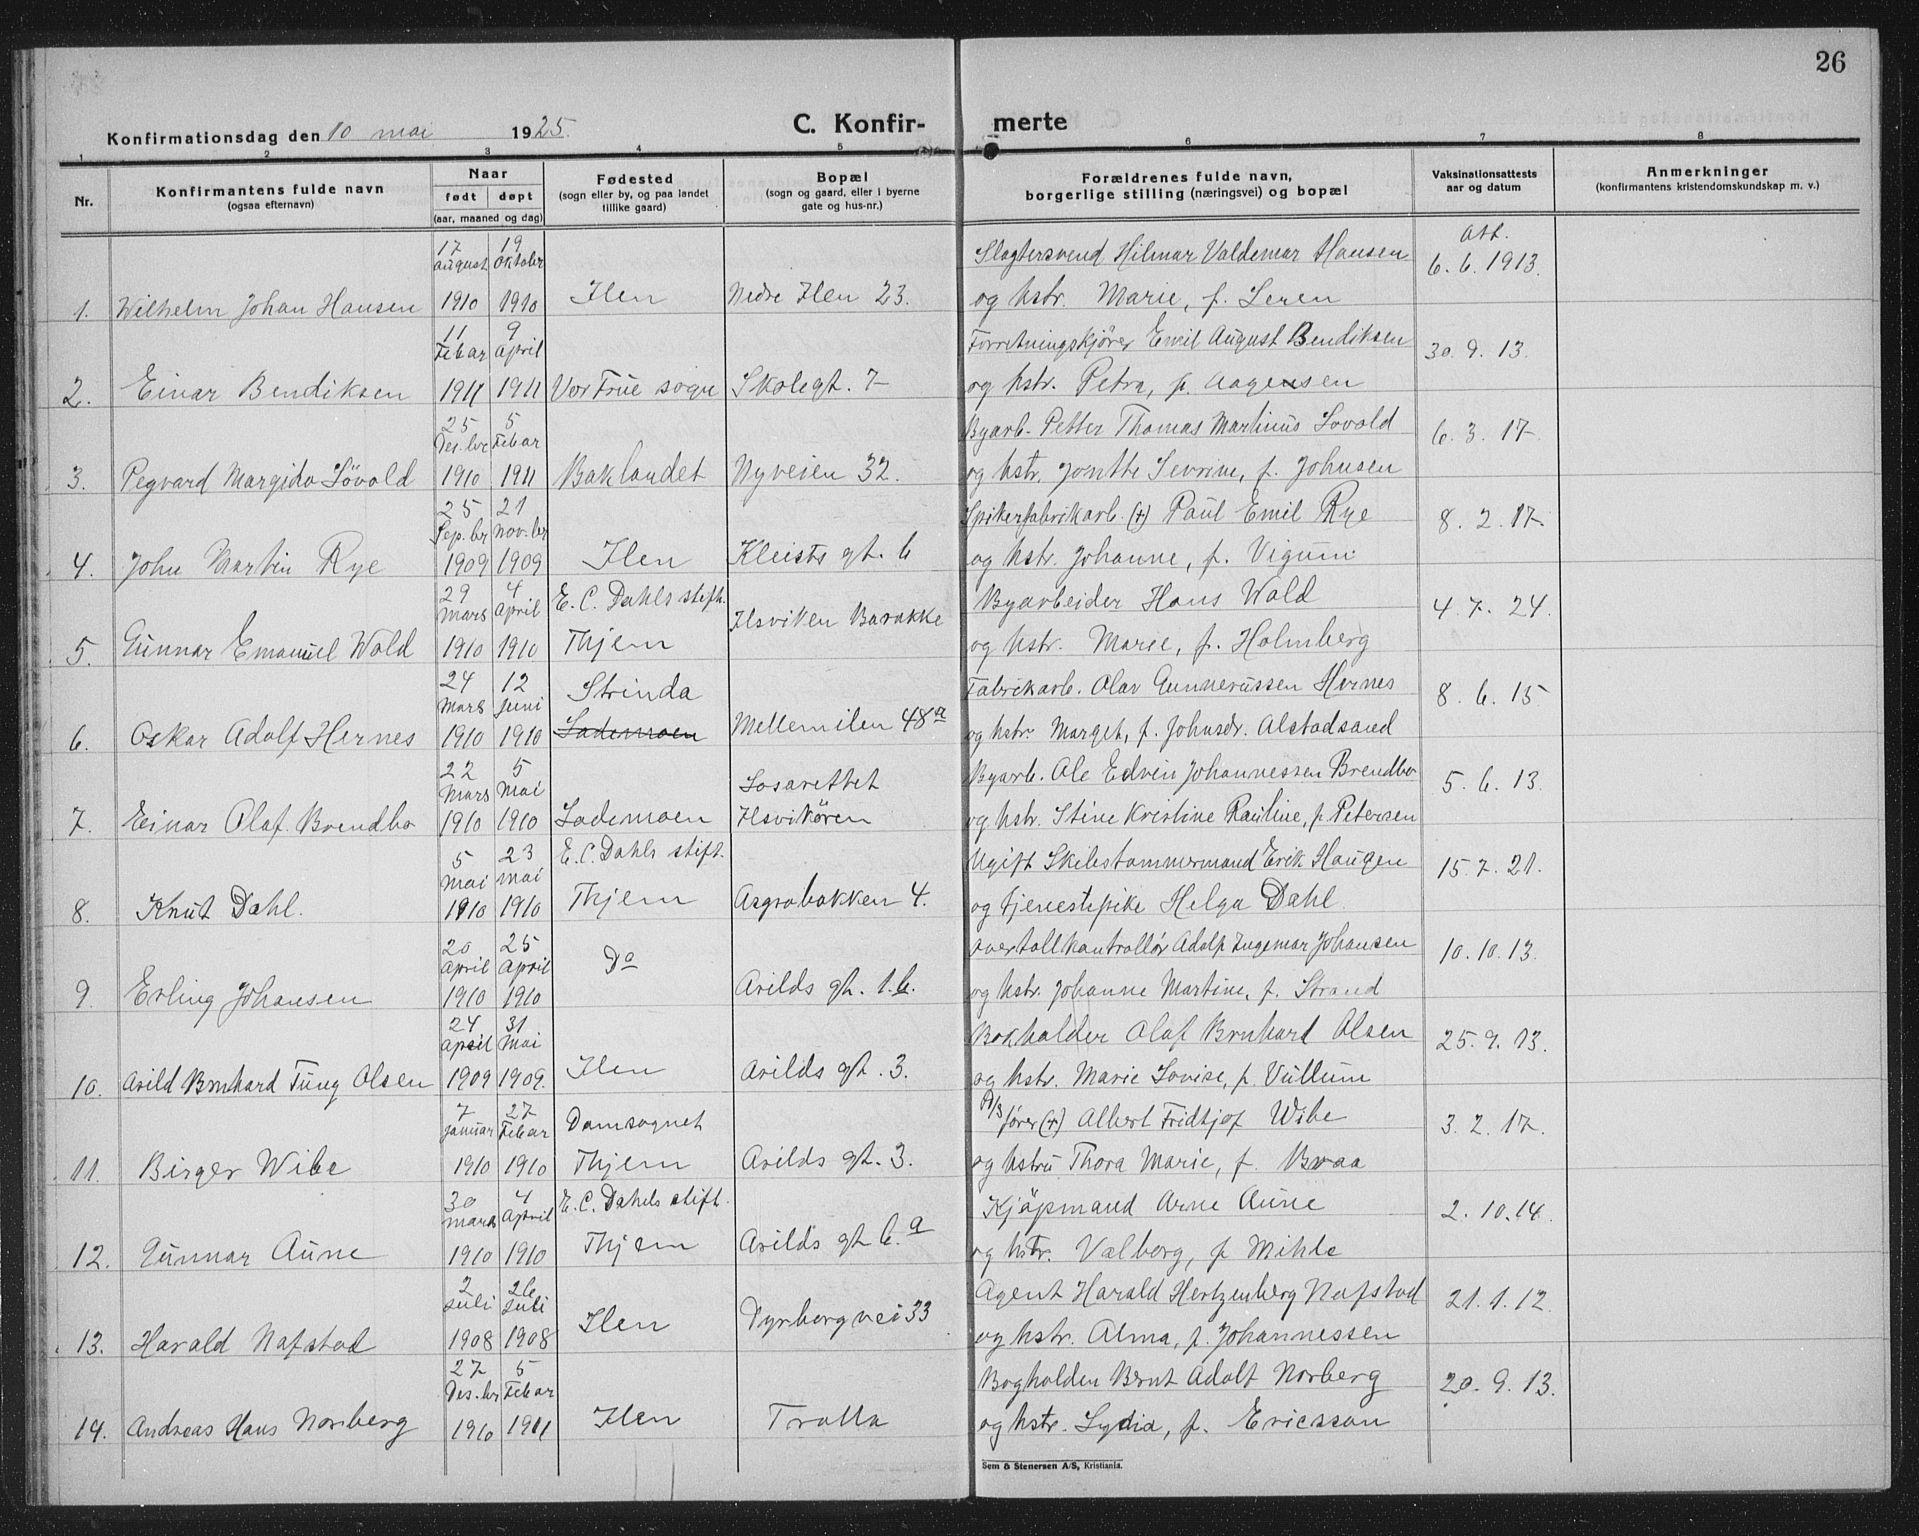 26
Konfirmationsdag den 10 mai 1925.
C. Konfir- merte
1 2 3 4 5 6 7 8
Nr. Konfirmantens fulde navn (ogsaa efternavn) Naar født døpt (aar, maaned og dag) Fødested (sogn eller by, og paa landet tillike gaard) Bopæl (sogn og gaard, eller i byerne gate og hus-nr.) Forældrenes fulde navn, borgerlige stilling (næringsvei) og bopæl Vaksinationsattests aar og datum Anmerkninger (konfirmantens kristendomskundskap m. v.)
17 august 19 oktober Slagtersvend Hilmar Valdemar Hansen Att. 6.6.1913.
1. Wilhelm Johan Hansen 1910 1910 Ilen Nedre Ilen 23. og hstr. Marie, f. Leren
11 Febar 9 April Forretningskjører Emil August Bendiksen 30.9.13.
2. Einar Bendiksen 1911 1911 Vor Frue sogn Skolegt. 7 og hstr. Petra, f. Aagensen
25 Des.br 5 Febar Byarb. Petter Thomas Martinus Lovold 6.3.17.
3. Pegvard Margido Løvold 1910 1911 Baklandet Nyveien 32. og hstr. Jonette Sevrine, f. Johnsen
25 Sep.br 21 Nov.br Spikerfabrikarb. (+) Paul Emil Rye 8.2.17.
4. John Martin Rye 1909 1909 Ilen Kleists gt. 6 og hstr. Johanne, f. Vigum.
29 Mars 4 April E. C. Dahls stift. Byarbeider Hans Wold 4.7.24.
5. Gunnar Emanuel Wold 1910 1910 Thjem Ilsviken Barakke og hstr. Marie, f. Holmberg
24 Mars 12 Juni Strinda Fabrikarb. Olav Gunnerussen Hernes 8.6.15
6. Oskar Adolf Hernes 1910 1910 Lademoen Mellemilen 48a og hstr. Marget, f. Johnsdr. Alstadsand
22 Mars 5 Mai Lasarettet Byarb. Ole Edvin Johannessen Brendbo 5.6.13.
7. Einar Olaf Brendbo 1910 1910 Lademoen Ilsvikøren og hstr. Stine Kristine Pauline, f. Petersen
5 Mai 23 mai E. C. Dahls stift. Ugift Skibstømmermand Erik Haugen 15.7.21.
8. Knut Dahl. 1910 1910 Thjem Asgrabakken 4. og tjenestepike Helga Dahl.
20 April 25 April Do overtollkontrollør Adolf Ingemar Johansen 10.10.13.
9. Erling Johansen 1910 1910 Arilds gt. 1.b. og hstr. Johanne Martine, f. Strand
24 April 31 Mai Bokholder Olaf Brnhard Olsen 25.9.13.
10. Arild Brnhard Tung Olsen 1909 1909. Ilen Arilds gt. 3. og hstr. Marie Lovise, f. Vullum
7 januar 27 Febar Domsognet D/S fører (+) Albert Fridtjof Wibe 3.2.17.
11. Birger Wibe 1910 1910 Thjem Arilds gt. 3. og hstru Thora Marie, f. Braa
30 Mars 4 April E. C. Dahls stift. Kjøpmand Arne Aune 2.10.14.
12. Gunnar Aune 1910 1910 Thjem Arilds gt 6.a og hstr. Valborg, f. Mihle
2 Juli 26 Juli Agent Harald Hertzenberg Nafstad 21.1.12.
13. Harald Nafstad 1908 1908 Ilen Dyrborgvei 33 og hstr. Alma, f. Johannessen
27 Des.br 5 Febar Bogholden Bernt Adolf Norberg 20.9.13.
14. Andreas Hans Norberg 1910 1911 Ilen Trolla og hstr. Lydia, f. Ericsson
Sem & Stenersen A/S, Kristiania.